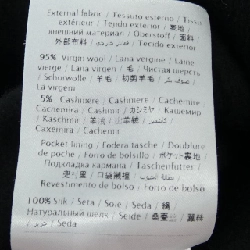 External fabric / Tessuto esterno / Tissu
extérieur / Tejido exterior / 表地 /
внешний материал / Oberstoff / 面料
外部布料 / / Tecido exterior
95% Virgin wool / Lana vergine / Laine
vierge / Lana virgen / 毛 / Чистая шерсть
/ Schurwolle / 羊毛 / 初剪羊毛 /
Lã virgem
5% Cashmere / Cashmere / Cachemire
Cachemira / Cashmir / カシミヤ / Кашемир
/ Kaschmir / 羊绒 /
Caxemira / Cachemir
Pocket lining / Fodera tasche / Doublure
de poche / Forro de bolsillo / ポケット裏地
Подкладка кармана / Taschenfutter /
/ 口袋裡襯 /
Revestimento de bolso / Forro de bolso
100% Silk / Seta / Soie / Seda / 絹 /
Натуральный шелк / Seide / 桑蚕丝 / 蠶絲
/ Seda